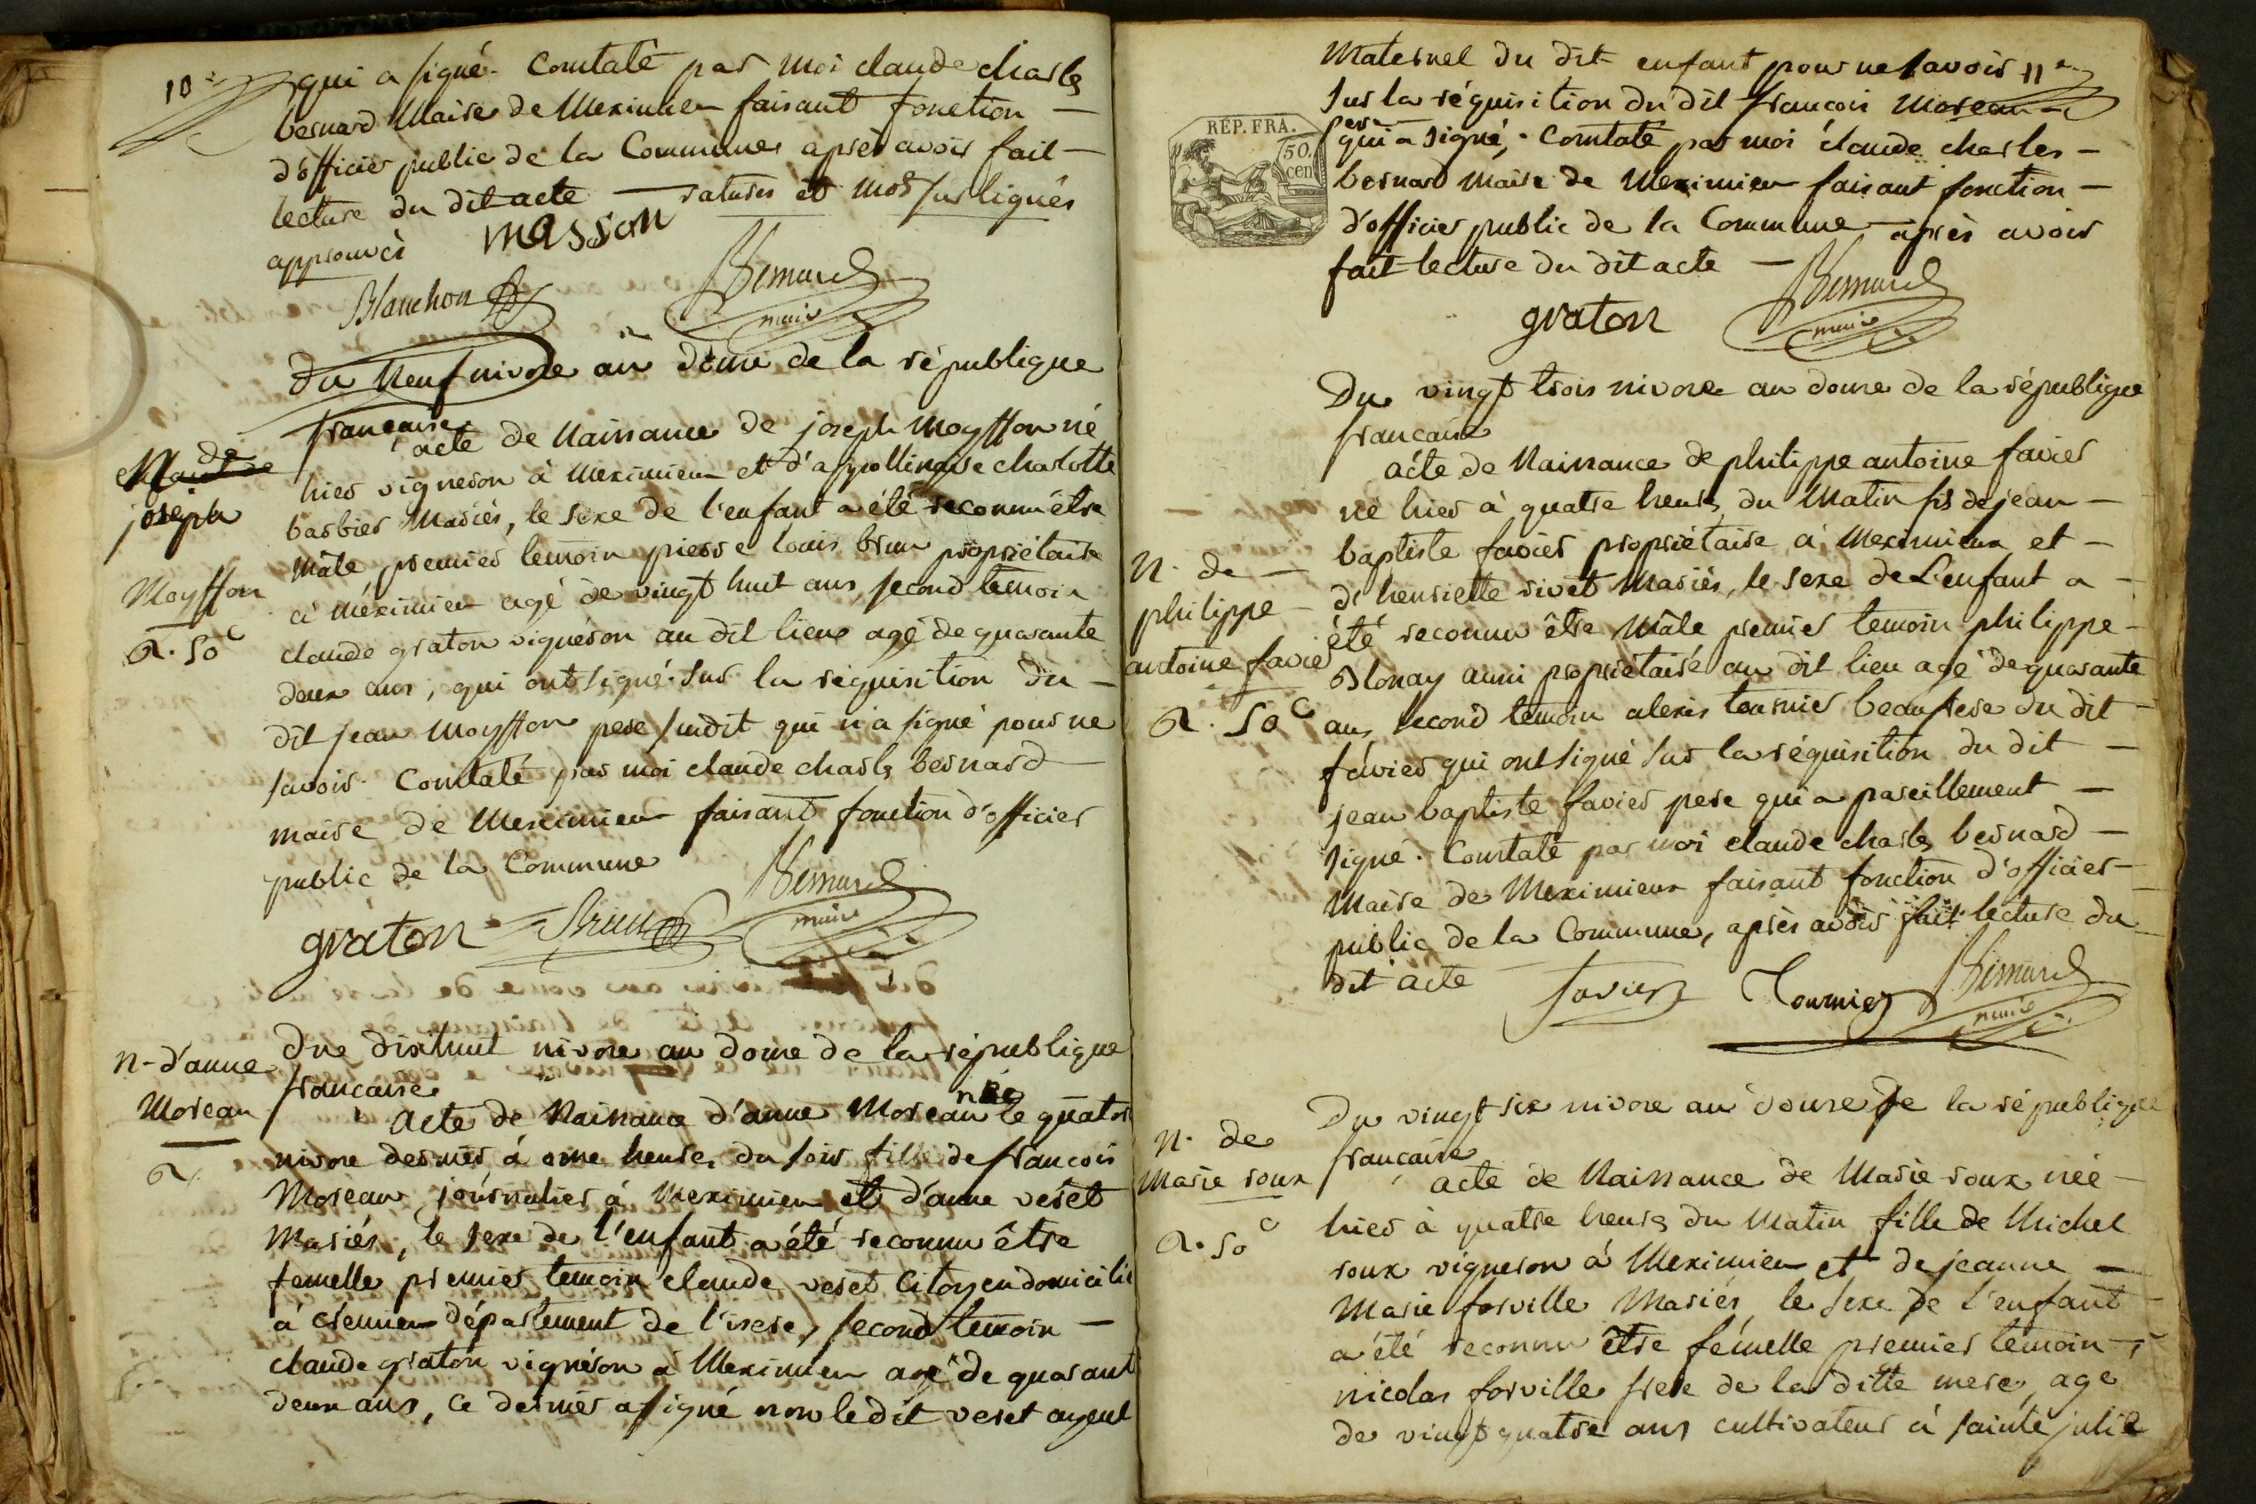 10e
qui a signé. Constaté par moi claude charles
bernard Maire de Meximieu faisant fonction —
d'officier public de la Commune après avoir fait —
lecture du dit acte — ratures et mos surligués
approuvés masson
Blanchon Bernard
maire
du neuf nivose an douze de la république
francaise
acte de Naissance de joseph Moyffon né
hier vigneron à Meximieu et d'appollinaire charlotte
barbier Mariés, le sexe de l'enfant a été reconnu être
Mâle, premier temoin pierre louis brun propriétaire
à Méximieu agé de vingt huit ans, second temoin
claude graton vigneron au dit lieu agé de quarante
deux ans, qui ont signé. Sur la requisition du —
dit jean Moyffon pere susdit qui n'a signé pour ne
savoir. Constaté par moi claude charles bernard —
maire de Meximieu faisant fonction d'officier
public de la Commune
de
joseph
Moyffon
50c
graton Brun Bernard
maire
Du dixhuit nivose an douze de la république
francaise
acte de Naissance d'anne Moreau née le quators
nivose dernier à onze heures du soir fille de francois
Moreau journalier à Meximieu et d'anne veret
Mariés, le sexe de l'enfant a été reconnu être
femelle premier temoin claude veret Citoyen domicilié
à crémieu département de l'isere, second temoin —
claude graton vignéron à Meximieu agé de quarant
deux ans, Ce dernier a signé non le dit veret ayeul
N - d'anne
Moreau
Maternel du dit enfant pour ne savoir 11e
Sur la réquisition du dit francois Moreau —
pere
qui a signé, . Constaté par moi claude charles —
bernard Maire de Meximieu faisant fonction —
d'officier public de la Commune après avoir
fait lecture du dit acte —
RÉP. FRA.
50.
cen
graton Bernard
maire
Du vingt trois nivose an douze de la république
francaise
acte de Naissance de philippe antoine favier
né hier à quatre heures du Matin fils de jean —
baptiste favier propriétaire à Meximieu et —
d'henriette rivet Mariés, le sexe de L'enfant a —
été reconnu être Mâle premier temoin philippe —
Blonay aussi propriétaire au dit lieu agé de quarante
ans, second temoin alexis tournier beaufrere du dit —
favier qui ont signé sur la réquisition du dit —
jean baptiste favier pere qui a pareillement —
signé. Constaté par moi claude charles bernard —
Maire de Meximieu faisant fonction d'officier —
public de la Commune, après avoir fait lecture du
dit acte
N. de —
philippe —
antoine favier
50c
favier Tournier Bernard
maire
Du vingt six nivose an douze de la république
francaise
acte de Naissance de Marie roux née —
hier à quatre heures du Matin fille de Michel
roux vigneron à Meximieu et de jeanne —
Marie forville Mariés le sexe de l'enfant —
a été reconnu être fémelle premier temoin —
nicolas forville frere de la ditte mere, agé
de vingt quatre ans cultivateur à sainte julie
N. de
Marie roux
50c